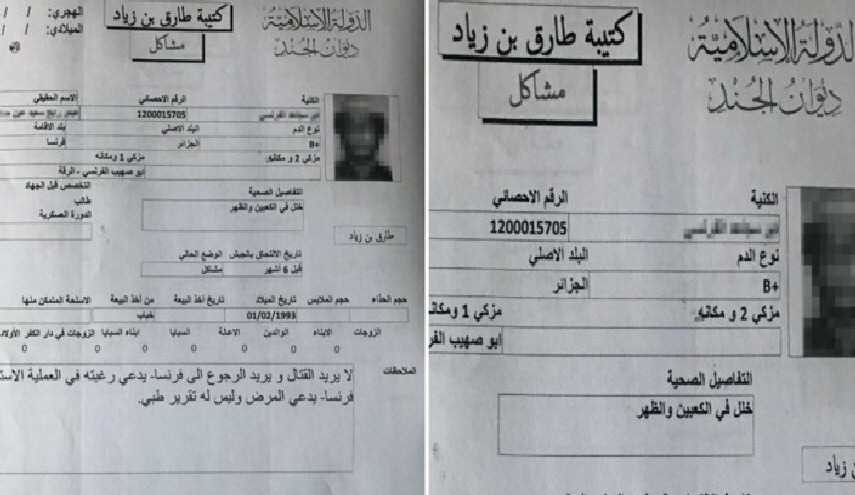 الهجري: / /
الميلادي: / /
كتيبة طارق بن زياد
مشاكل
الدولة الإسلامية
ديوان الجند
الكنية
الرقم الاحصائي
الاسم الحقيقي
1200015705
نوع الدم
البلد الاصلي
بلد الاقامة
B+
الجزائر
فرنسا
مزكي 2 و مكانه
مزكي 1 ومكانه
ابو صهيب الفرنسي - الرقة
التخصص قبل الجهاد
طالب
الدورة العسكرية
التفاصيل الصحية
خلل في الكعبين والظهر
طارق بن زياد
تاريخ الالتحاق بالجيش
الوضع الحالي
قبل 6 اشهر
مشاكل
حجم الحذاء
حجم الملابس
تاريخ الميلاد
تاريخ أخذ البيعة
من أخذ البيعة
الاسلحة المتمكن منها
01/02/1993
خباب
الزوجات
الابناء
الوالدين
الاعالة
السبايا
ابناء السبايا
الزوجات في دار الكفر
0 0 0 0 0 0
الملاحظات
لا يريد القتال و يريد الرجوع الى فرنسا- يدعي رغبته في العملية
فرنسا- يدعي المرض وليس له تقرير طبي.
كتيبة طارق بن زياد
مشاكل
الدولة الإسلامية
ديوان الجند
الكنية
الرقم الاحصائي
1200015705
نوع الدم
البلد الاصلي
B+
الجزائر
مزكي 2 و مكانه
مزكي 1 ومكانه
ابو صهيب الفر
التفاصيل الصحية
خلل في الكعبين والظهر
بن زياد